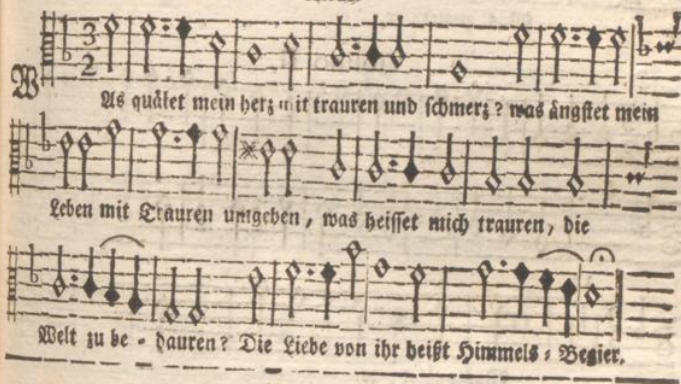 3
2
WAs quälet mein herz mit trauren und schmerz? was ängstet mein
Leben mit Trauren umgeben, was heisset mich trauren, die
Welt zu be - dauren? Die Liebe von ihr heißt Himmels = Begier.